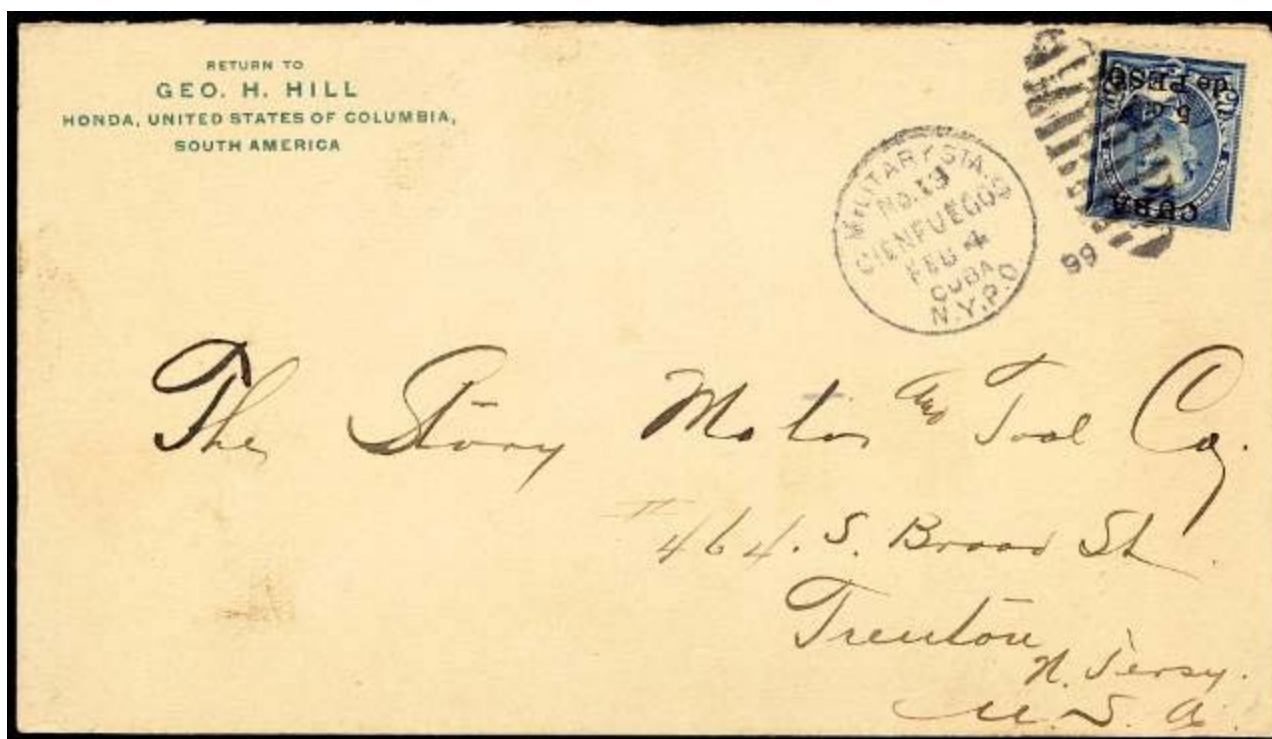 RETURN TO
GEO. H. HILL
HONDA, UNITED STATES OF COLUMBIA,
SOUTH AMERICA
MILITARY STA.
No. 13
CIENFUEGOS
FEB 4
CUBA
N.Y.P.O
99
CUBA
5 c.
de PESO
The Story Motor and Tool Co.
464. S. Broad St.
Trenton
N. Jersy.
U. S. A.